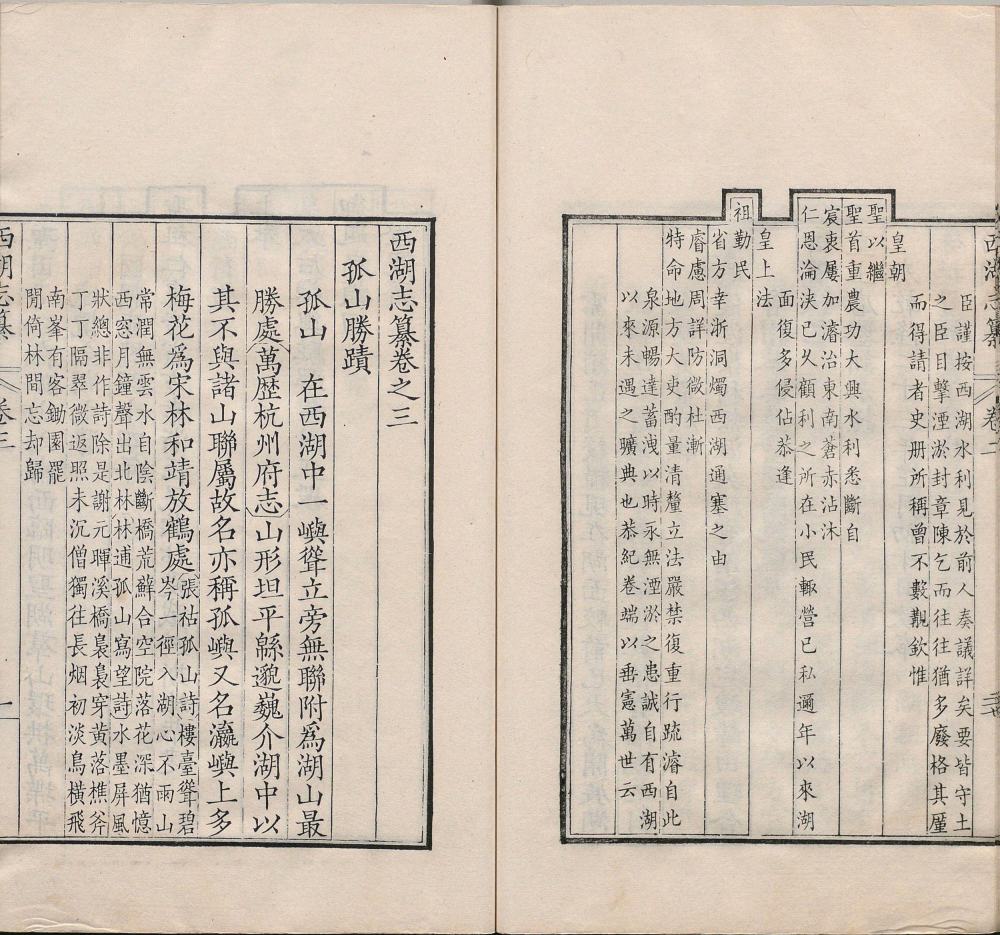 西湖志纂 卷二
臣謹按西湖水利見於前人奏議詳矣要皆守土
之臣目擊湮淤封章陳乞而往往猶多廢格其厪
而得請者史册所稱曾不數覯欽惟
皇朝
聖以繼
聖首重農功大興水利悉斷自
宸衷屢加濬治東南蒼赤沾沐
仁恩淪浹已乆顧利之所在小民輙營已私邇年以來湖
面復多侵佔恭逢
皇上法
祖勤民
省方幸浙洞燭西湖通塞之由
睿慮周詳防微杜漸
特命地方大吏酌量清釐立法嚴禁復重行疏濬自此
泉源暢達蓄洩以時永無湮淤之患誠自有西湖
以來未遇之曠典也恭紀卷端以垂憲萬世云
西湖志纂卷之三
孤山勝蹟
孤山 在西湖中一嶼聳立旁無聯附爲湖山最
勝處萬歷杭州府志山形坦平緜邈巍介湖中以
其不與諸山聯屬故名亦稱孤嶼又名瀛嶼上多
梅花爲宋林和靖放鶴處張祜孤山詩樓臺聳碧
岑一徑入湖心不雨山
常潤無雲水自陰斷橋荒蘚合空院落花深猶憶
西窓月鐘聲出北林林逋孤山寫望詩水墨屏風
狀總非作詩除是謝元暉溪橋裊裊穿黃落樵斧
丁丁隔翠微返照未沉僧獨往長烟初淡鳥横飛
南峯有客鋤園罷
閒倚林間忘却歸
西湖志纂 卷三 一